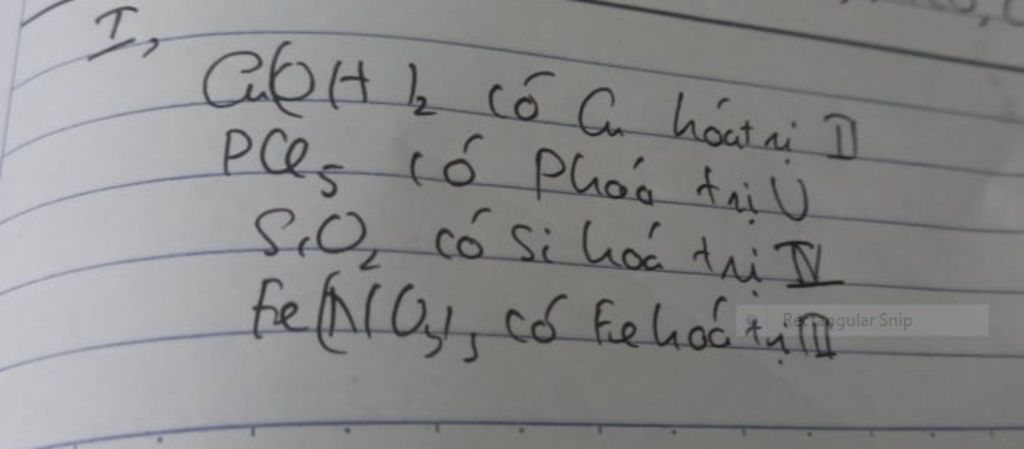 I,
Cu(OH)₂ có Cu hoá trị II
PCl₅ có P hoá trị V
SiO₂ có Si hoá trị IV
Fe(NO₃)₃ có Fe hoá trị III
Rectangular Snip